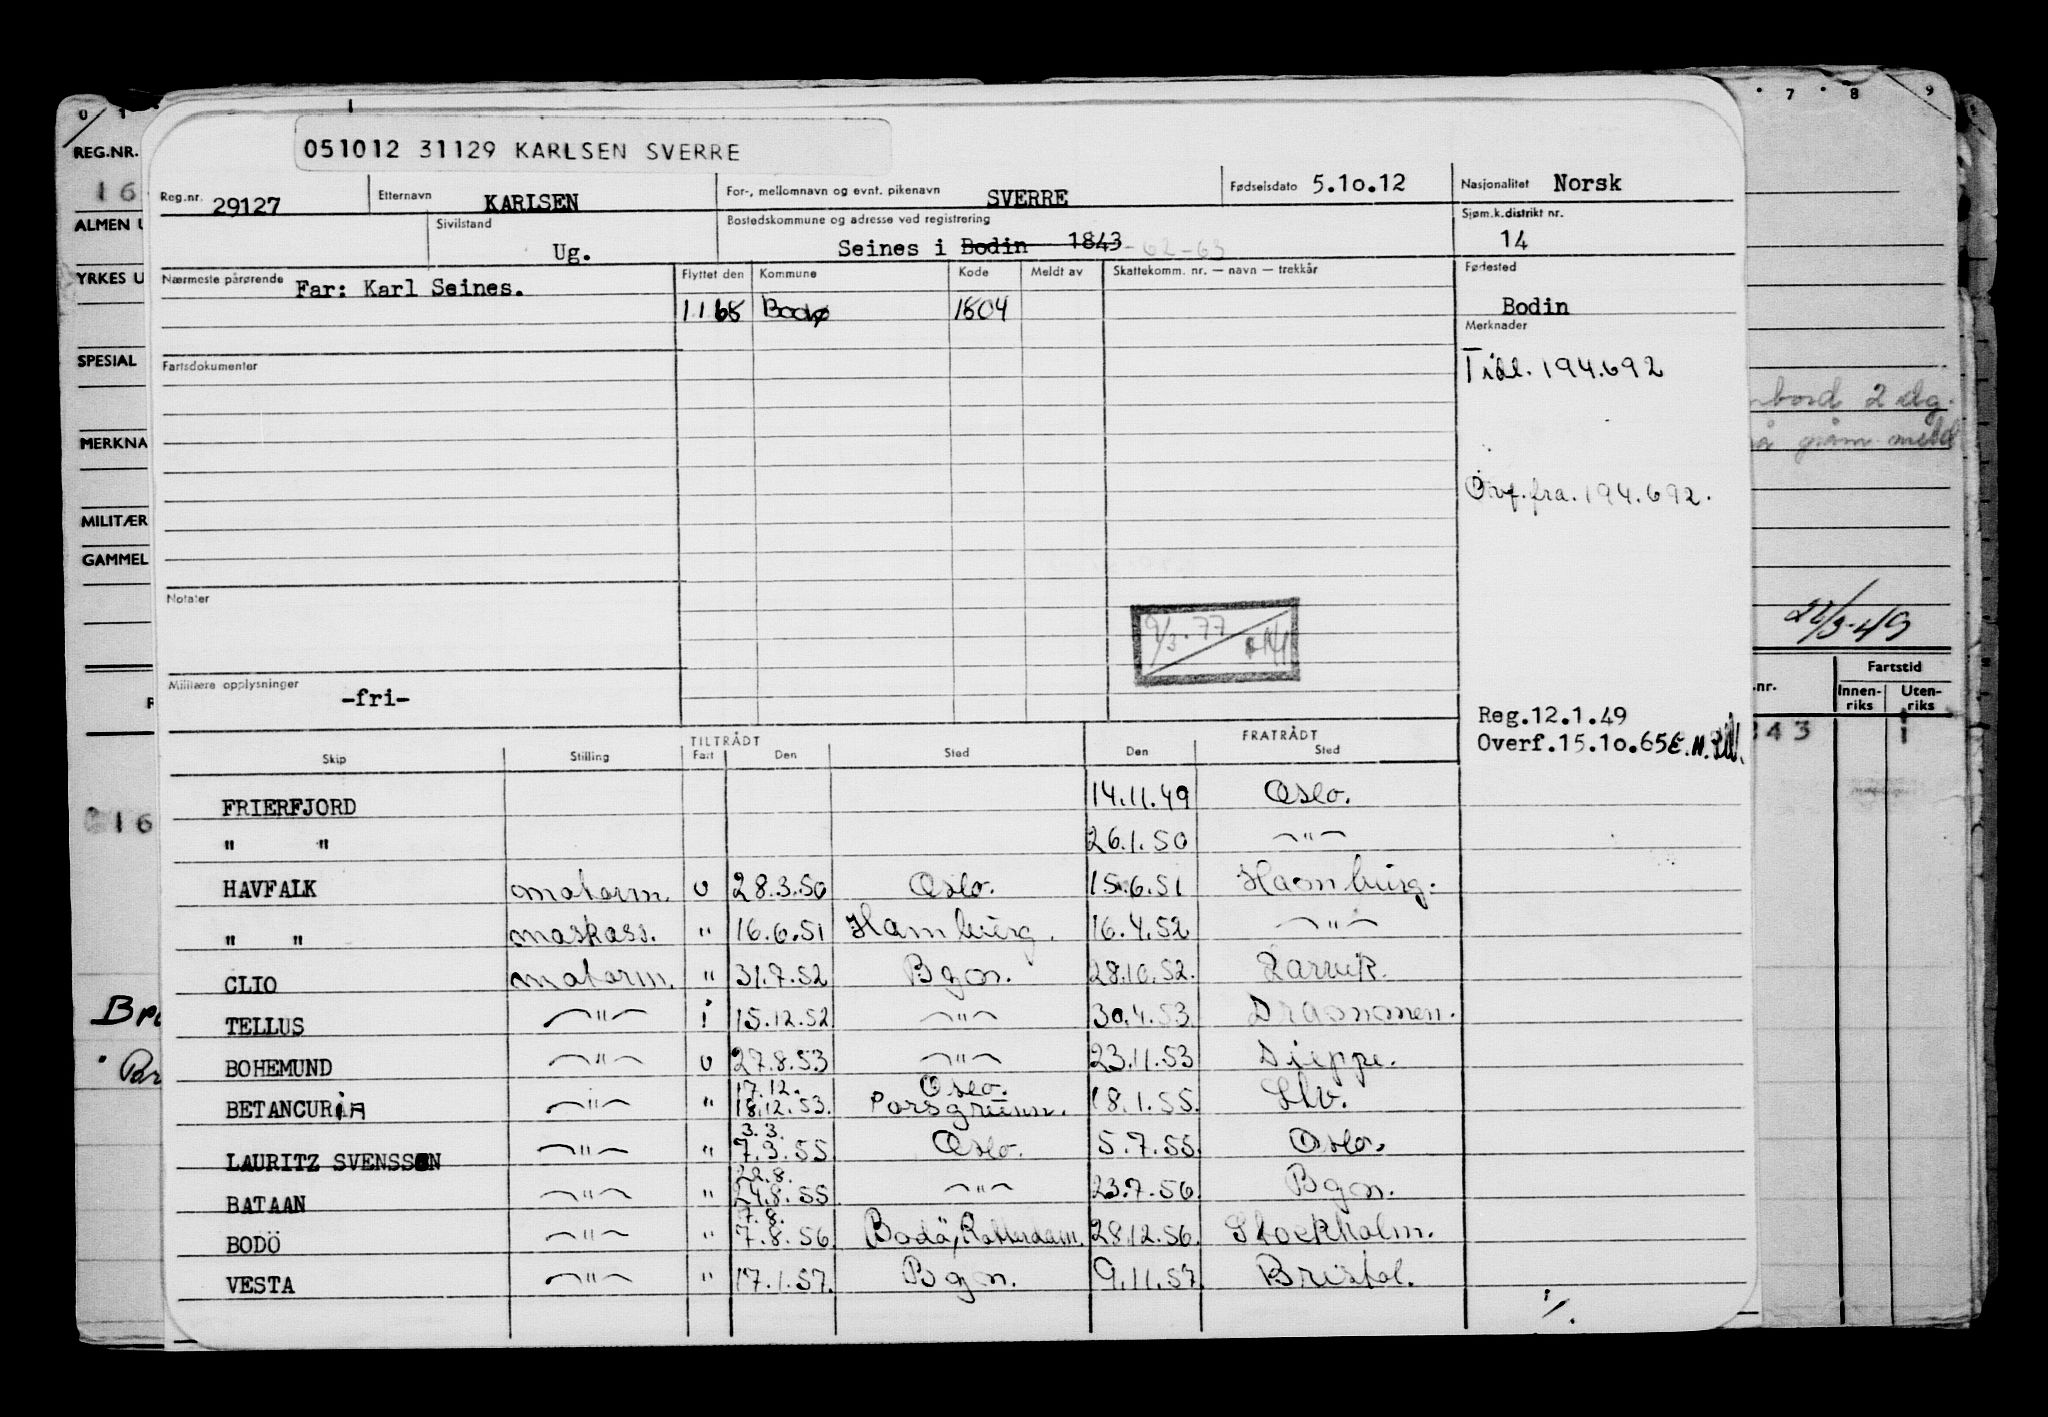 0 1 7 8 9
051012 31129 KARLSEN SVERRE
REG.NR.
16
Reg.nr. 29127 Etternavn KARLSEN For-, mellomnavn og evnt. pikenavn SVERRE Fødselsdato 5.10.12 Nasjonalitet Norsk
ALMEN U
Sivilstand Ug. Bostedskommune og adresse ved registrering Seines i Bodin 1843 -62-63 Sjøm.k.distrikt nr. 14
YRKES U
Nærmeste pårørende Far: Karl Seines. Flyttet den Kommune Kode Meldt av Skattekomm. nr. — navn — trekkår Fødested
1 1 68 Bodø 1804 Bodin
Merknader
SPESIAL
Fartsdokumenter
Tidl. 194.692
2 dg.
MERKNA
Ovf. fra. 194.692.
MILITÆR
GAMMEL
Notater
9/3.77
22/3-49
Militære opplysninger -fri-
Fartstid
.nr. Innen-riks Uten-riks
Reg.12.1.49
Overf.15.10.65
43 1
TILTRÅDT FRATRÅDT
Skip Stilling Fart Den Sted Den Sted
FRIERFJORD 14.11.49 Oslo.
16
" " 26.1.50 —"—
HAVFALK motorm. u 28.3.50 Oslo. 15.6.51 Hamburg.
" " maskass. " 16.6.51 Hamburg. 16.4.52 —"—
CLIO motorm. " 31.7.52 Bgn. 28.10.52. Larvik.
TELLUS —"— i 15.12.52 —"— 30.4.53 Drammen.
BOHEMUND —"— u 27.8.53 —"— 23.11.53 Dieppe.
17.12. Oslo.
BETANCURIA —"— " 18.12.53. Porsgrunn. 18.1.55. Slv.
3.3.
LAURITZ SVENSSON —"— " 7.3.55 Oslo. 5.7.55 Oslo.
22.8.
BATAAN —"— " 24.8.55 —"— 23.7.56 Bgn.
7.8.
BODÖ —"— " 7.8.56 Bodö, Rotterdam. 28.12.56. Stockholm.
VESTA —"— " 17.1.57. Bgn. 9.11.57 Bristol.